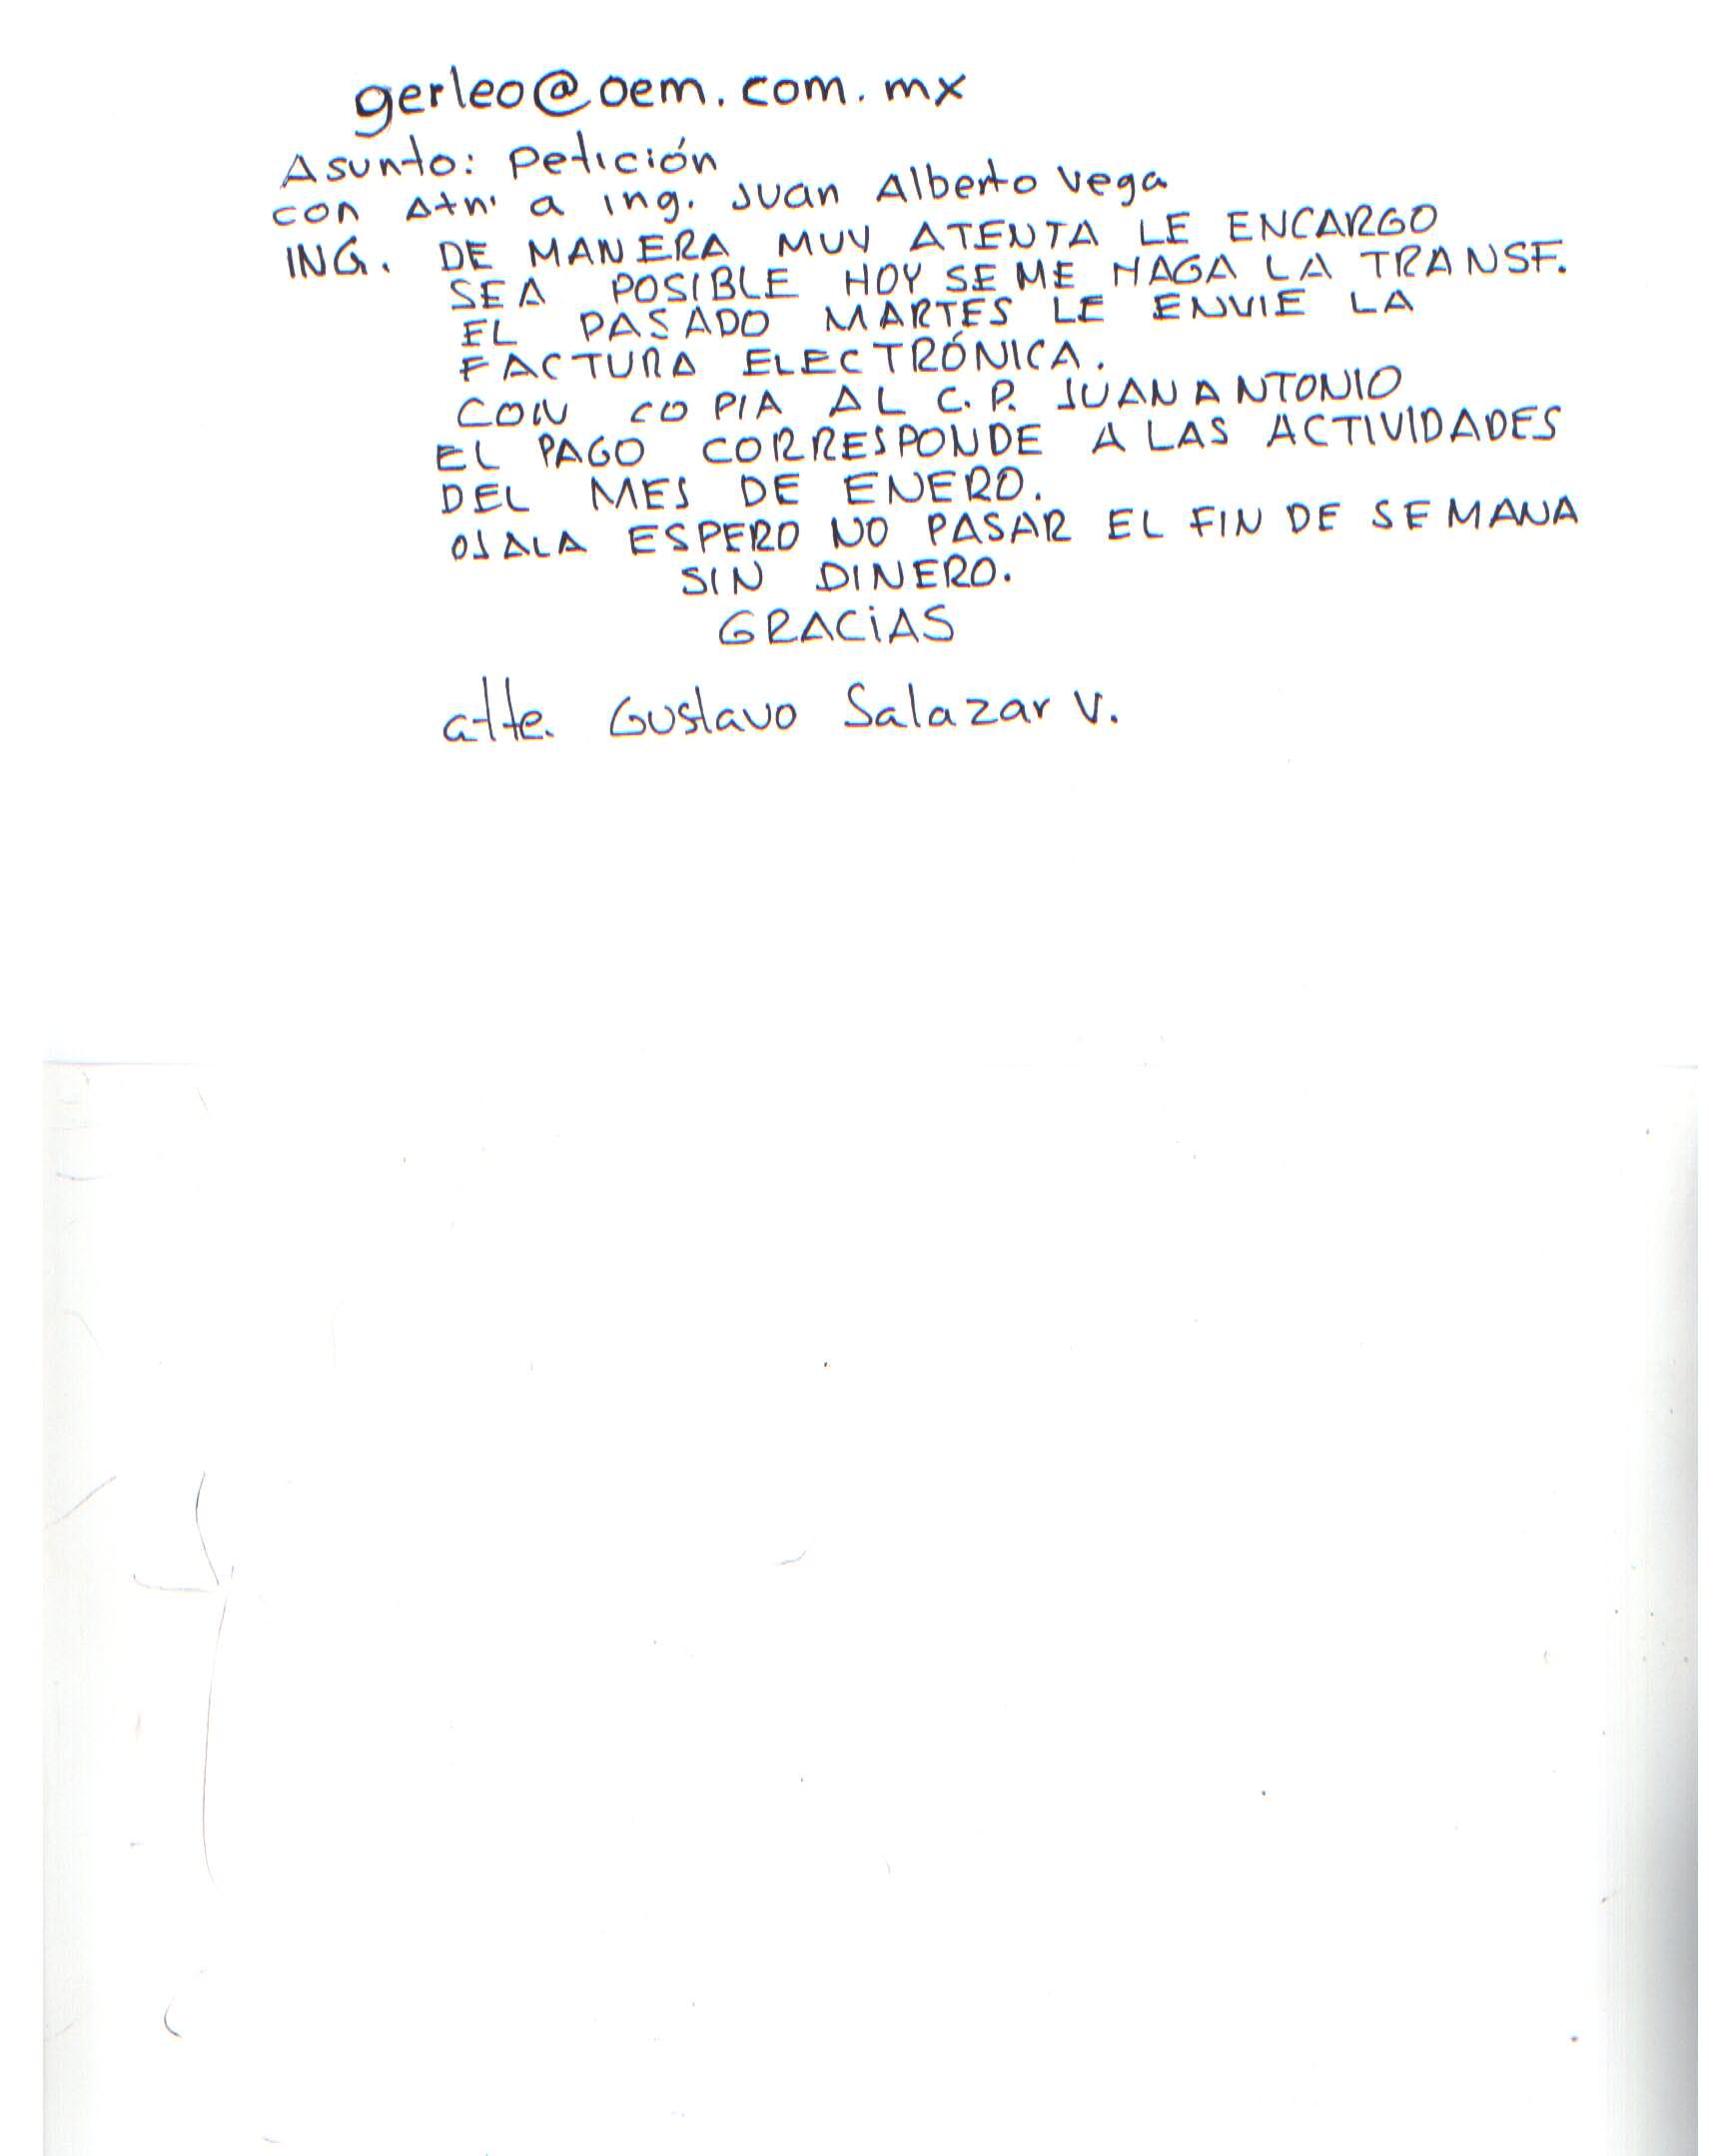 gerleo@oem.com.mx
Asunto: Petición
con Atn' a ing. Juan Alberto Vega
ING. DE MANERA MUY ATENTA LE ENCARGO
SEA POSIBLE HOY SE ME HAGA LA TRANSF.
EL PASADO MARTES LE ENVIE LA
FACTURA ELECTRÓNICA.
CON COPIA AL C.P. JUAN ANTONIO
EL PAGO CORRESPONDE A LAS ACTIVIDADES
DEL MES DE ENERO.
OJALA ESPERO NO PASAR EL FIN DE SEMANA
SIN DINERO.
GRACIAS
atte. Gustavo Salazar V.